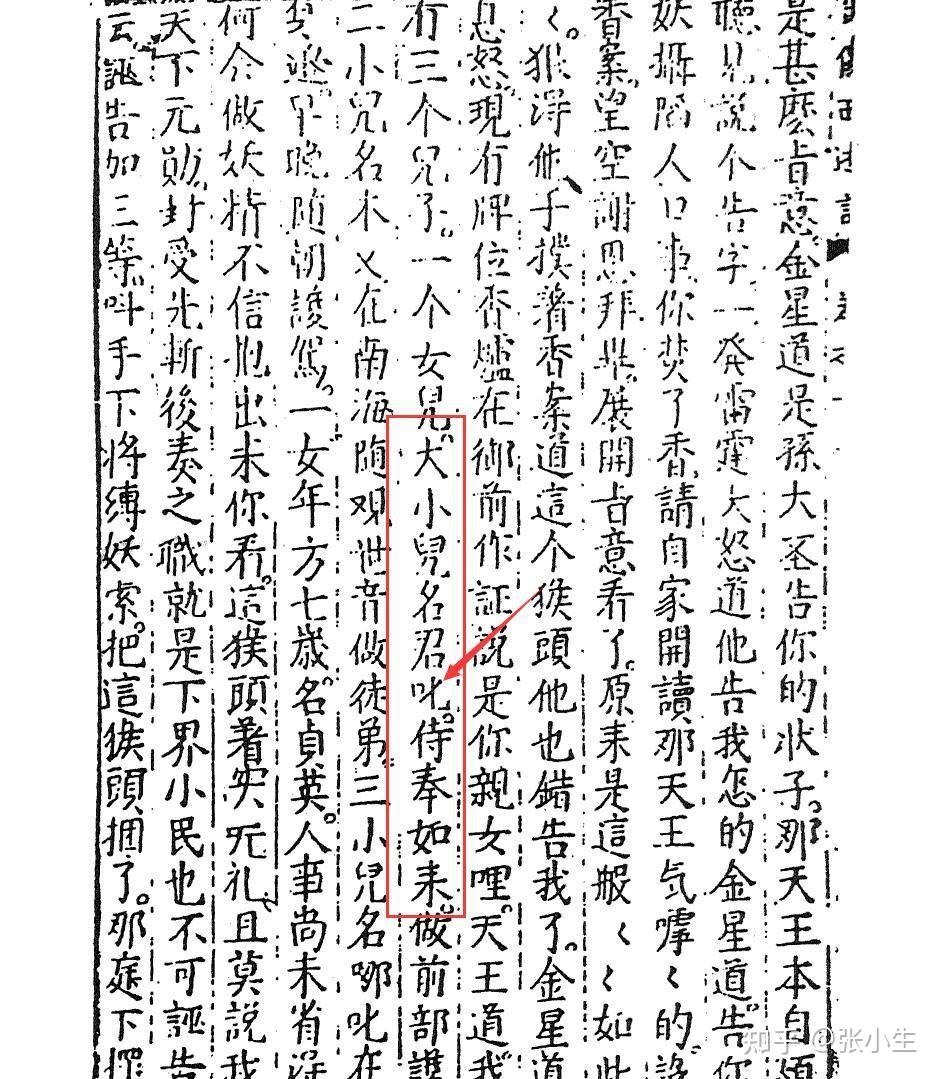 是甚麽旨意金星道是孫大圣告你的状子那天王本自煩
聽見説个告字一發雷霆大怒道他告我怎的金星道告你
妖攝陷人口事你焚了香請自家開讀那天王气嘑〱的設
香案望空謝恩拜畢展開旨意看了原来是這般〱〱如此
〱狠得他手撲着香案道這个猴頭他也錯告我了金星道
息怒現有牌位香爐在御前作証説是你親女哩天王道我
有三个兒子一个女兒大小兒名君叱侍奉如来做前部護
二小兒名木叉在南海随观世音做徒弟三小兒名哪叱在
随朝護駕一女年方七歳名貞英人事尚未省
何会做妖精不信抱出来你看這猴頭着实无礼且莫説我
天下元勛封受先斬後奏之職就是下界小民也不可誣告
云誣告加三等叫手下将縛妖索把這猴頭捆了那庭下
知乎 @张小生